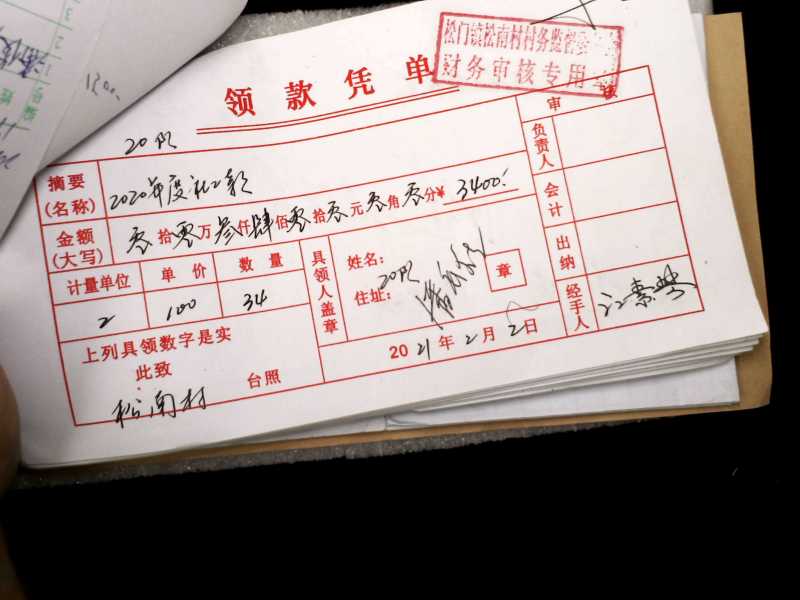 松门镇松南村村务监督委
财务审核专用
领款凭单
20队
审核
摘要
(名称)
2020年度社工款
负责人
金额
(大写)
零拾零万叁仟肆佰零拾零元零角零分¥ 3400.
会计
计量单位 单价 数量
2 100 34
具领人盖章
姓名:
住址:
20队
章
出纳
经手人
上列具领数字是实
此致
松南村 台照
2021年2月2日
1200.